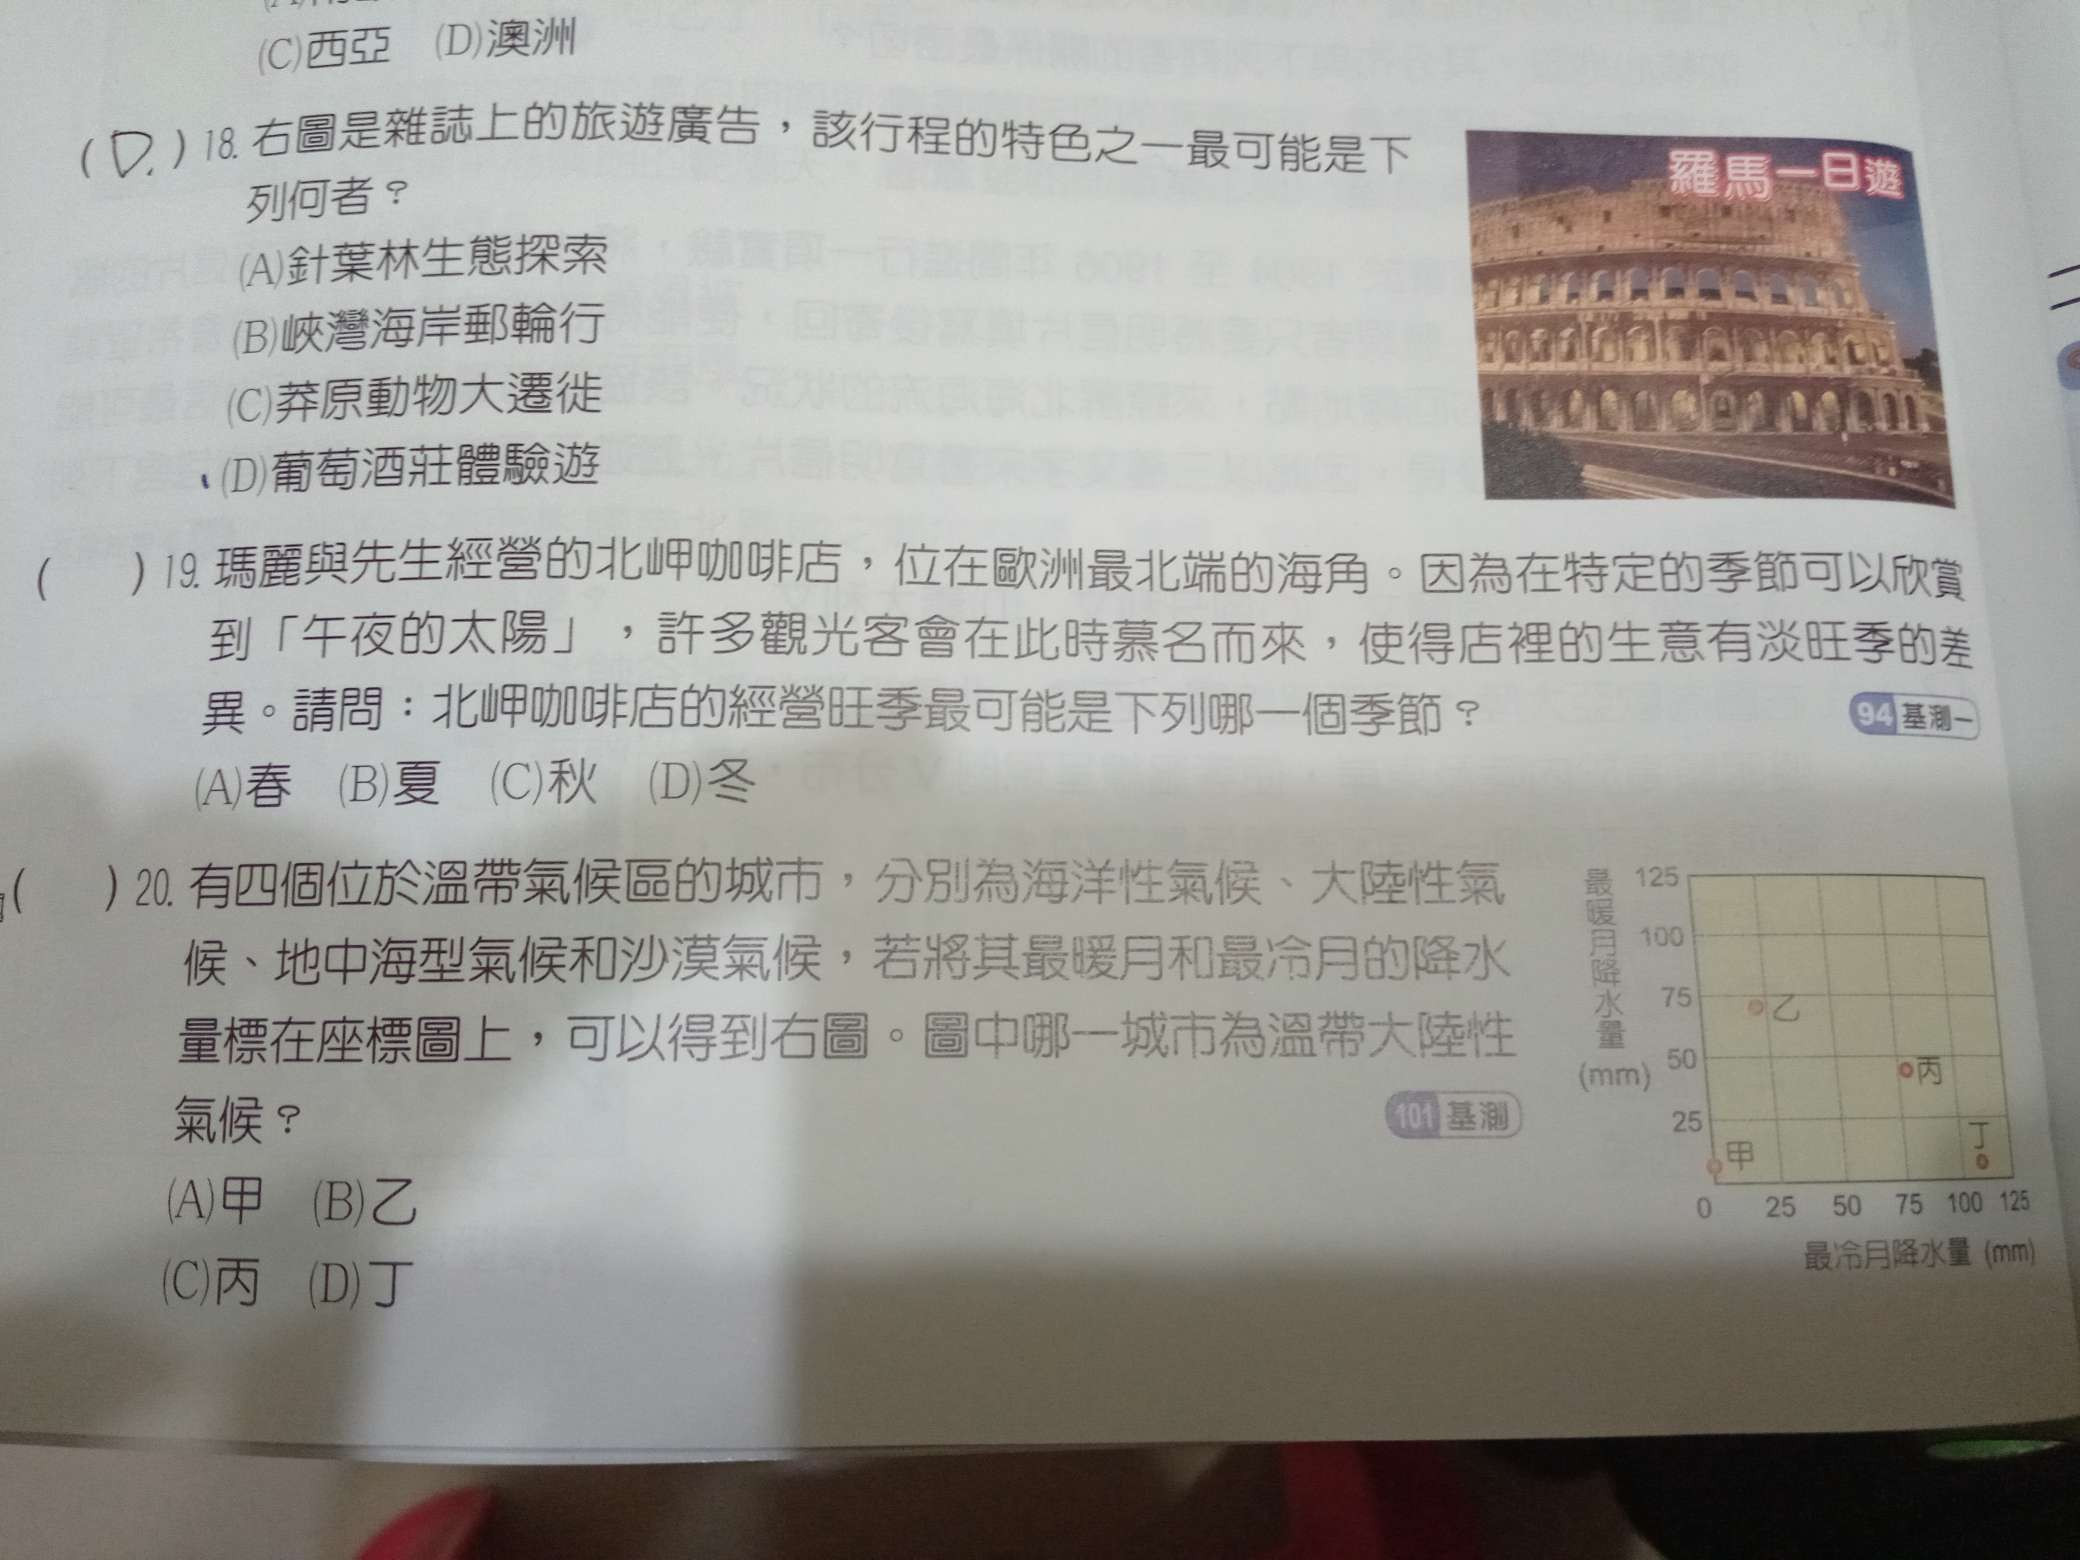 (C)西亞 (D)澳洲
(D.) 18. 右圖是雜誌上的旅遊廣告，該行程的特色之一最可能是下
列何者？
(A)針葉林生態探索
(B)峽灣海岸郵輪行
(C)莽原動物大遷徙
(D)葡萄酒莊體驗遊
羅馬一日遊
( ) 19. 瑪麗與先生經營的北岬咖啡店，位在歐洲最北端的海角。因為在特定的季節可以欣賞
到「午夜的太陽」，許多觀光客會在此時慕名而來，使得店裡的生意有淡旺季的差
異。請問：北岬咖啡店的經營旺季最可能是下列哪一個季節？
94 基測一
(A)春 (B)夏 (C)秋 (D)冬
( ) 20. 有四個位於溫帶氣候區的城市，分別為海洋性氣候、大陸性氣
候、地中海型氣候和沙漠氣候，若將其最暖月和最冷月的降水
量標在座標圖上，可以得到右圖。圖中哪一城市為溫帶大陸性
氣候？
101 基測
(A)甲 (B)乙
(C)丙 (D)丁
最暖月降水量
(mm)
125
100
75
50
25
乙
丙
丁
甲
0 25 50 75 100 125
最冷月降水量 (mm)